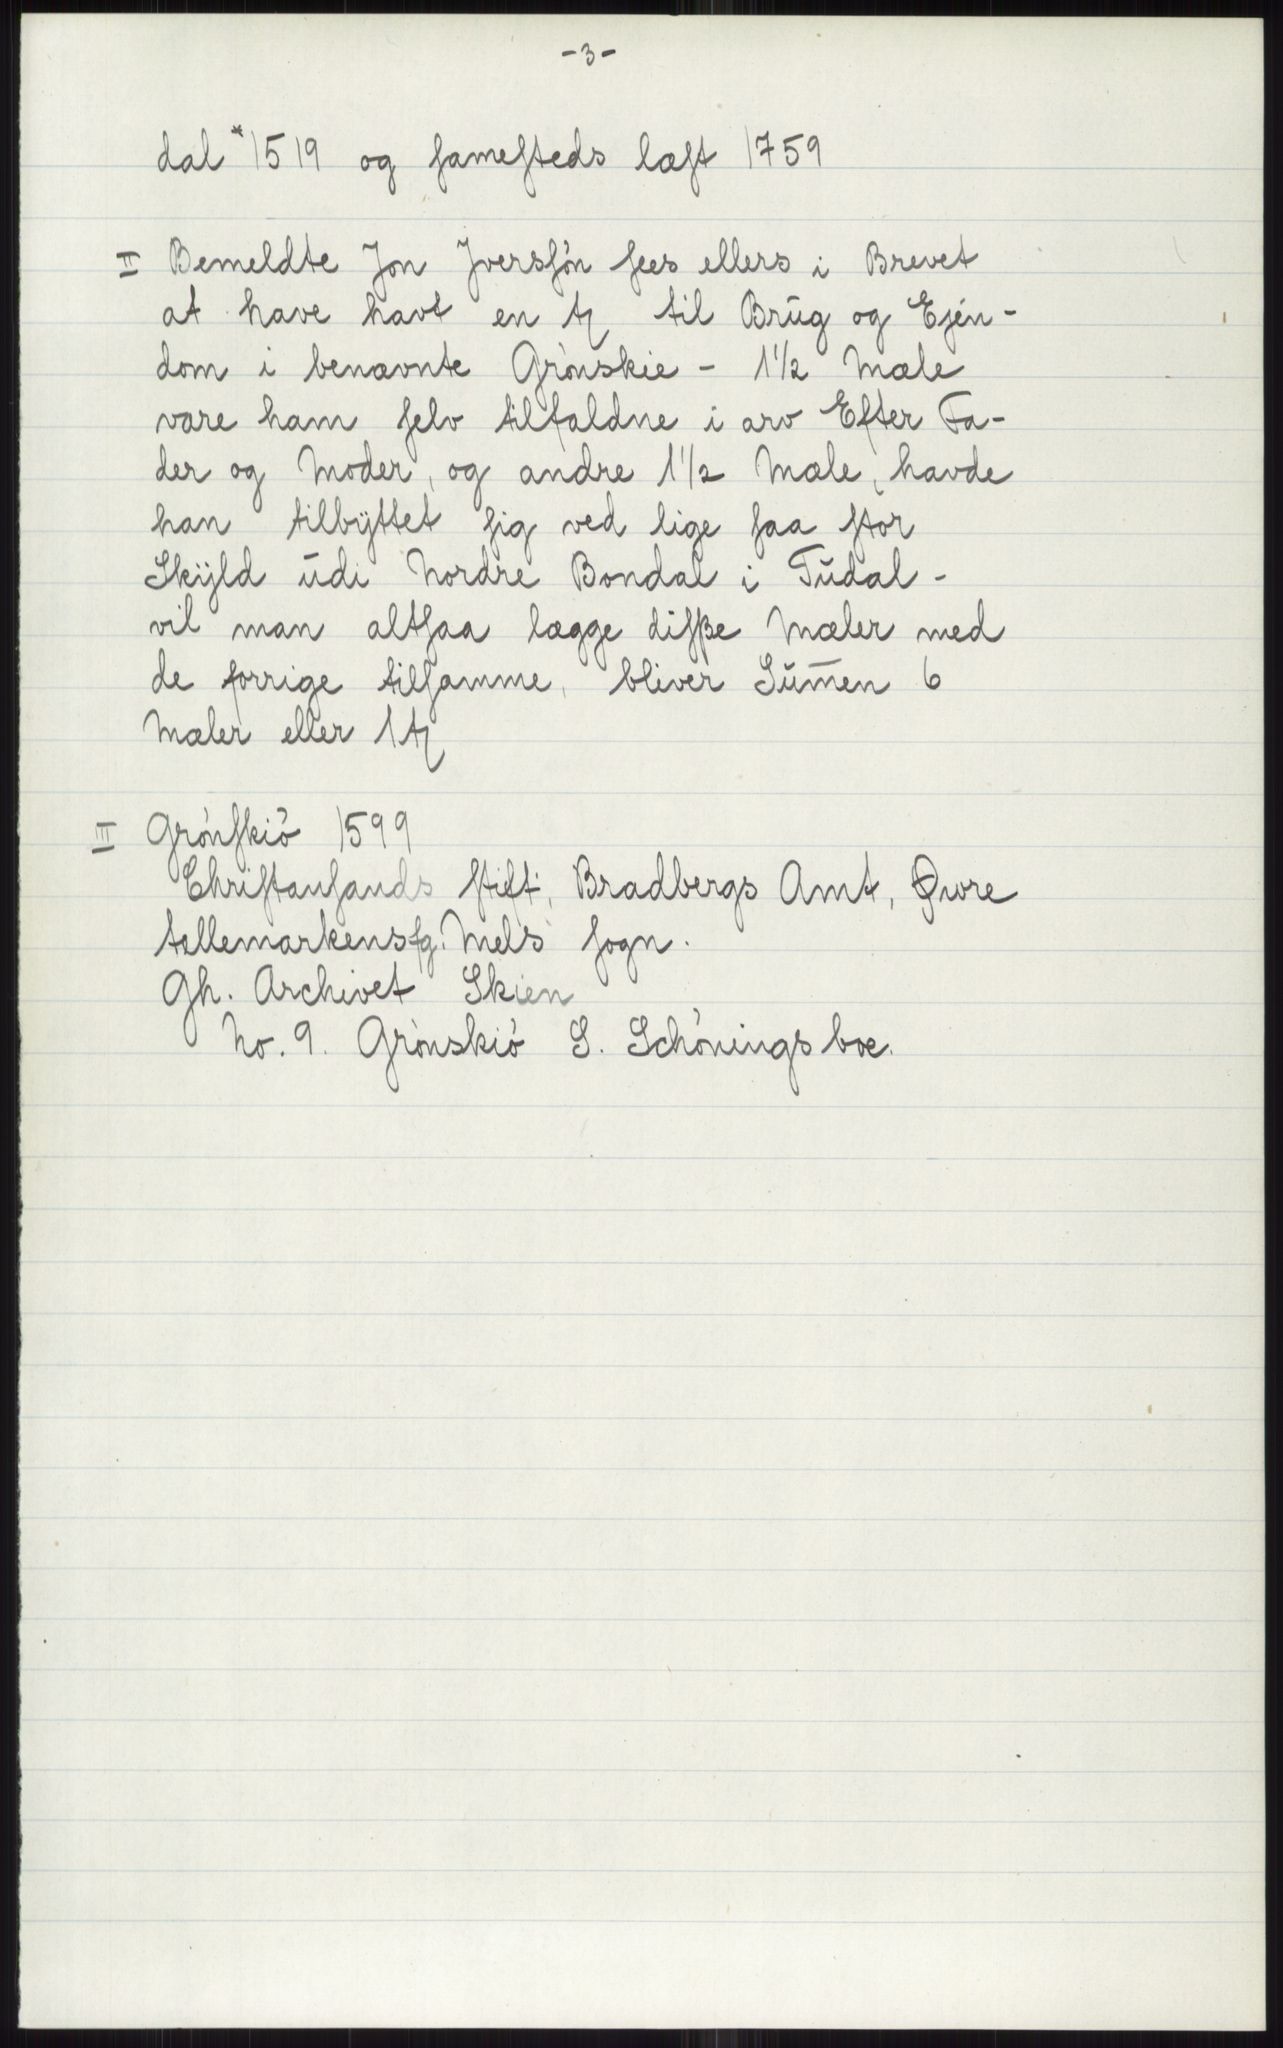 -3-
dal * 1519 og ſameſteds læſt 1759
II Bemeldte Jon Jversſøn ſees ellers i Brevet
at have havt en til Brŭg og Ejen-
dom i benævnte Grønskie - 1 1/2 Mæle
vare ham ſelv tilfaldne i arv Efter Fa-
der og Moder, og andre 1 1/2 Mæle, havde
han tilbÿttet ſig ved lige ſaa ſtor
Skÿld ŭdi Nordre Bondal i Tŭdal -
vil man altſaa lægge diſße Mæler med
de forrige tilſamme, bliver Sŭm̅en 6
Mæler eller 1
III Grønſkiø 1599
Chriſtanſands ſtift, Bradbergs Amt, Øvre
tellemarkens fg. Mels ſogn.
Gh. Archivet Skien
No. 9. Grønskiø S. Schønings boe.